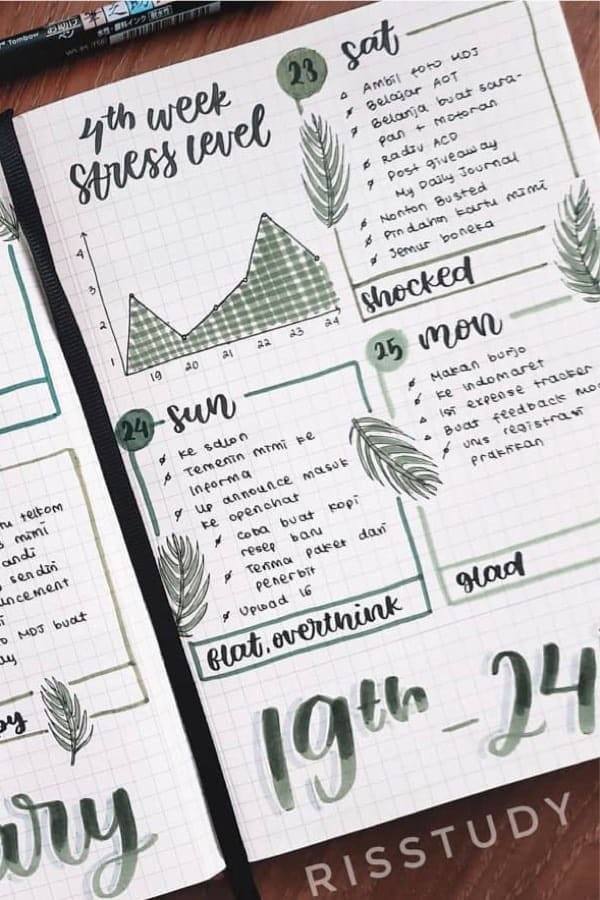 Tombow
4th week
stress level
4
3
2
1
19 20 21 22 23 24
23 sat
Ambil foto MDJ
Belajar AOT
Belanja buat sara-
pan + Motoran
Radiv ACD
Post giveaway
My Daily Journal
Nonton Busted
Pindahin kartu mimi
Jemur boneka
shocked
24 sun
ke salon
Temenin mimi ke
Informa
up announce masuk
ke openchat
coba buat kopi
resep baru
Terima paket dari
penerbit
Upload IG
flat, overthink
25 mon
Makan burjo
ke indomaret
Isi expense tracker
Buat feedback
registrasi
praktikan
glad
telkom
mimi
sendiri
MDJ buat
19th - 24
RISSTUDY